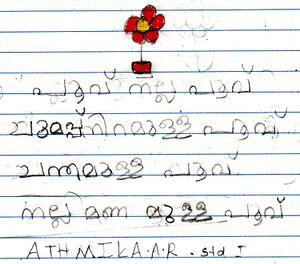 പൂവ് നല്ല പൂവ്
ചുമപ്പ്നിറമുള്ള പൂവ്
ചന്തമുള്ള പൂവ്
നല്ല മണ മുള്ള പൂവ്
ATHMIKA.A.R. std I